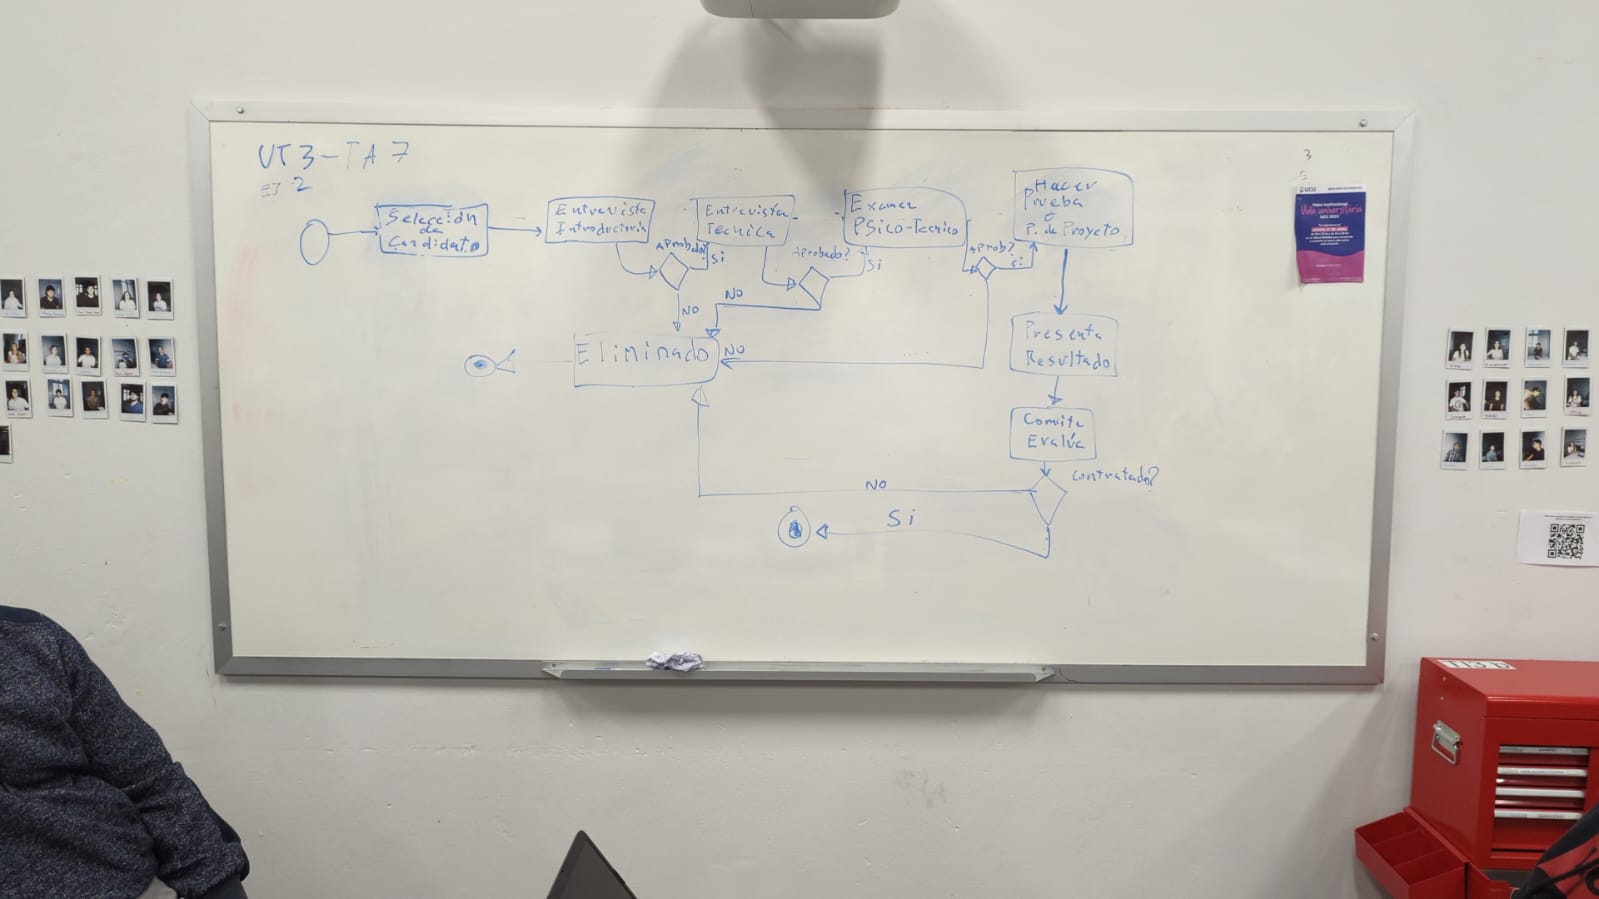 UT 3 - TA 7
EJ 2
Selección
de
Candidatos
Entrevista
Introductoria
Aprobado?
Si
NO
Entrevista
Tecnica
Aprobado?
Si
NO
Examen
PSico-Tecnico
Aprob?
Si
NO
Hacer
Prueba
P. de Proyeto
Presenta
Resultado
Comite
Evalúa
Contratado?
NO
Si
Eliminado
3
UCU
Vida universitaria
113 B